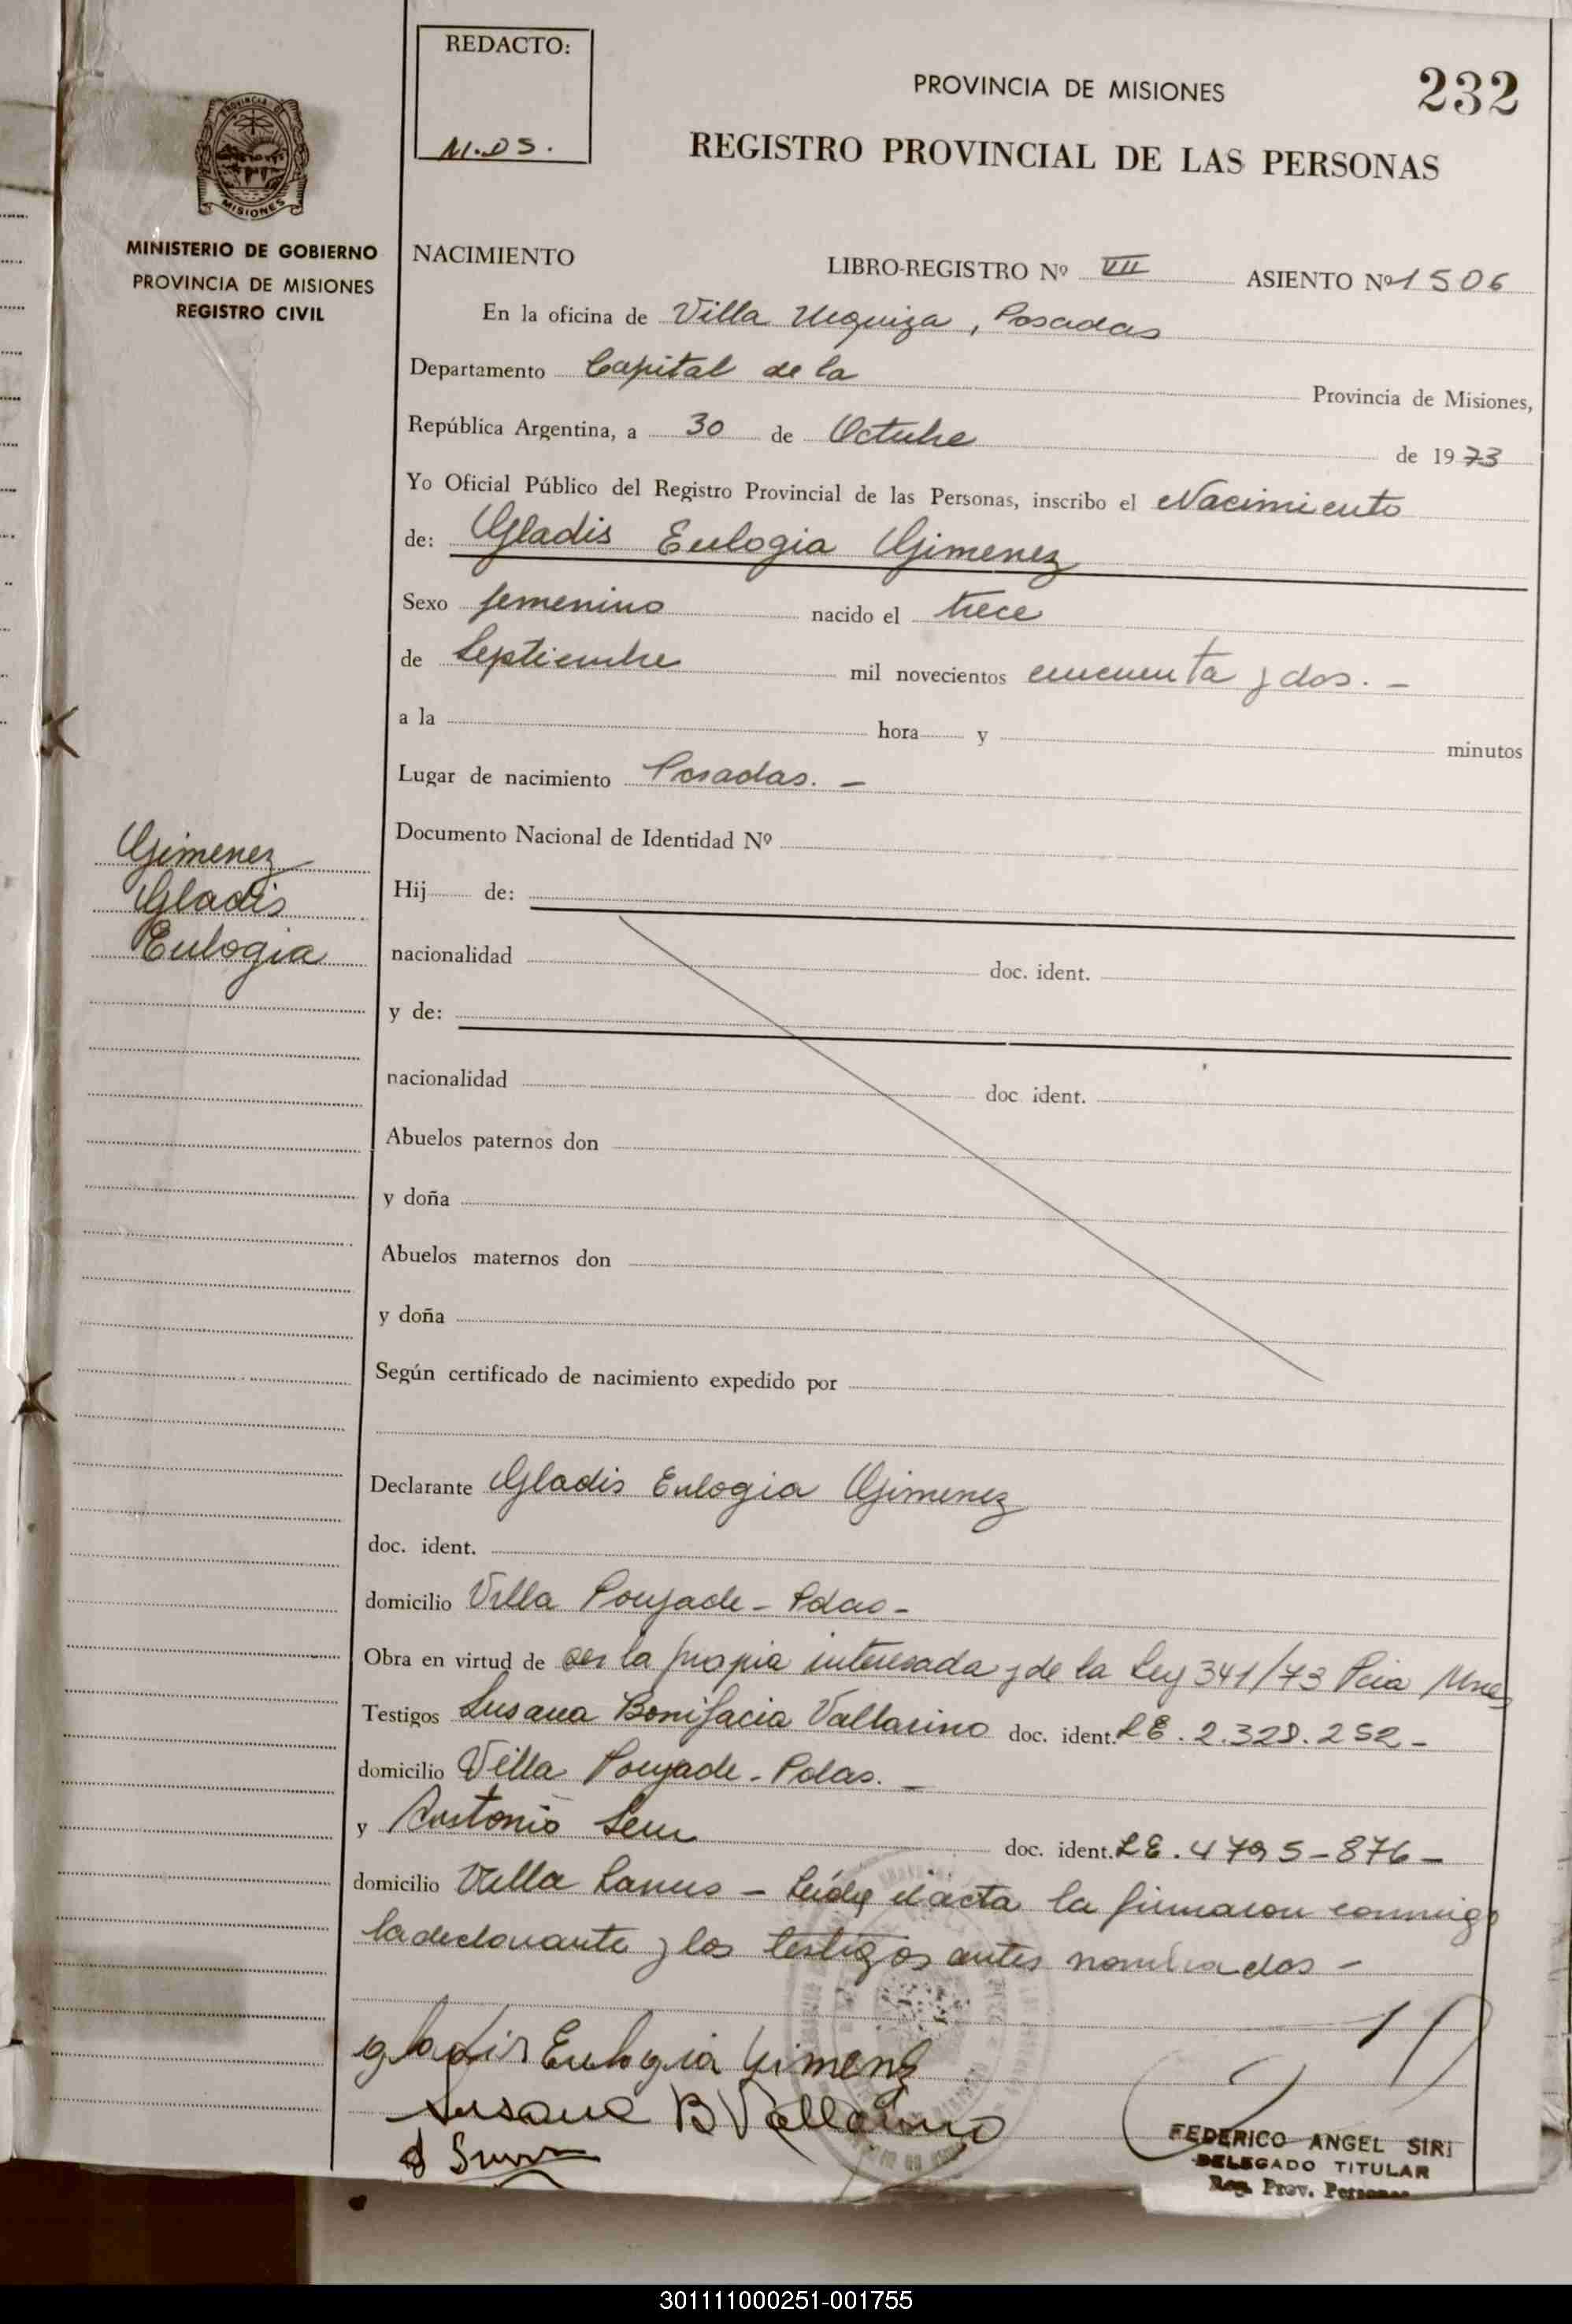 REDACTO:
M.DS.
PROVINCIA DE MISIONES
232
REGISTRO PROVINCIAL DE LAS PERSONAS
PROVINCIA DE
MISIONES
MINISTERIO DE GOBIERNO
PROVINCIA DE MISIONES
REGISTRO CIVIL
NACIMIENTO LIBRO-REGISTRO Nº VII ASIENTO Nº 1506
En la oficina de Villa Urquiza, Posadas
Departamento Capital de la Provincia de Misiones,
República Argentina, a 30 de Octubre de 1973
Yo Oficial Público del Registro Provincial de las Personas, inscribo el Nacimiento
de: Gladis Eulogia Gimenez
Sexo femenino nacido el trece
de Septiembre mil novecientos cincuenta y dos. -
a la hora y minutos
Lugar de nacimiento Posadas. -
Documento Nacional de Identidad Nº
Gimenez
Gladis
Eulogia
Hij de:
nacionalidad doc. ident.
y de:
nacionalidad doc ident.
Abuelos paternos don
y doña
Abuelos maternos don
y doña
Según certificado de nacimiento expedido por
Declarante Gladis Eulogia Gimenez
doc. ident.
domicilio Villa Poujade - Pdas -
Obra en virtud de ser la propia interesada y de la Ley 341/73 Pcia Mnes
Testigos Susana Bonifacia Vallarino doc. ident. LE. 2.328.252 -
domicilio Villa Poujade - Pdas. -
y Antonio doc. ident. LE. 4795-876 -
domicilio Villa Lanus - Leída el acta la firmaron conmigo
la declarante y los testigos antes nombrados -
gladis Eulogia Gimenez
Susana B Vallarino
FEDERICO ANGEL SIRI
DELEGADO TITULAR
Reg. Prov. Personas
301111000251-001755